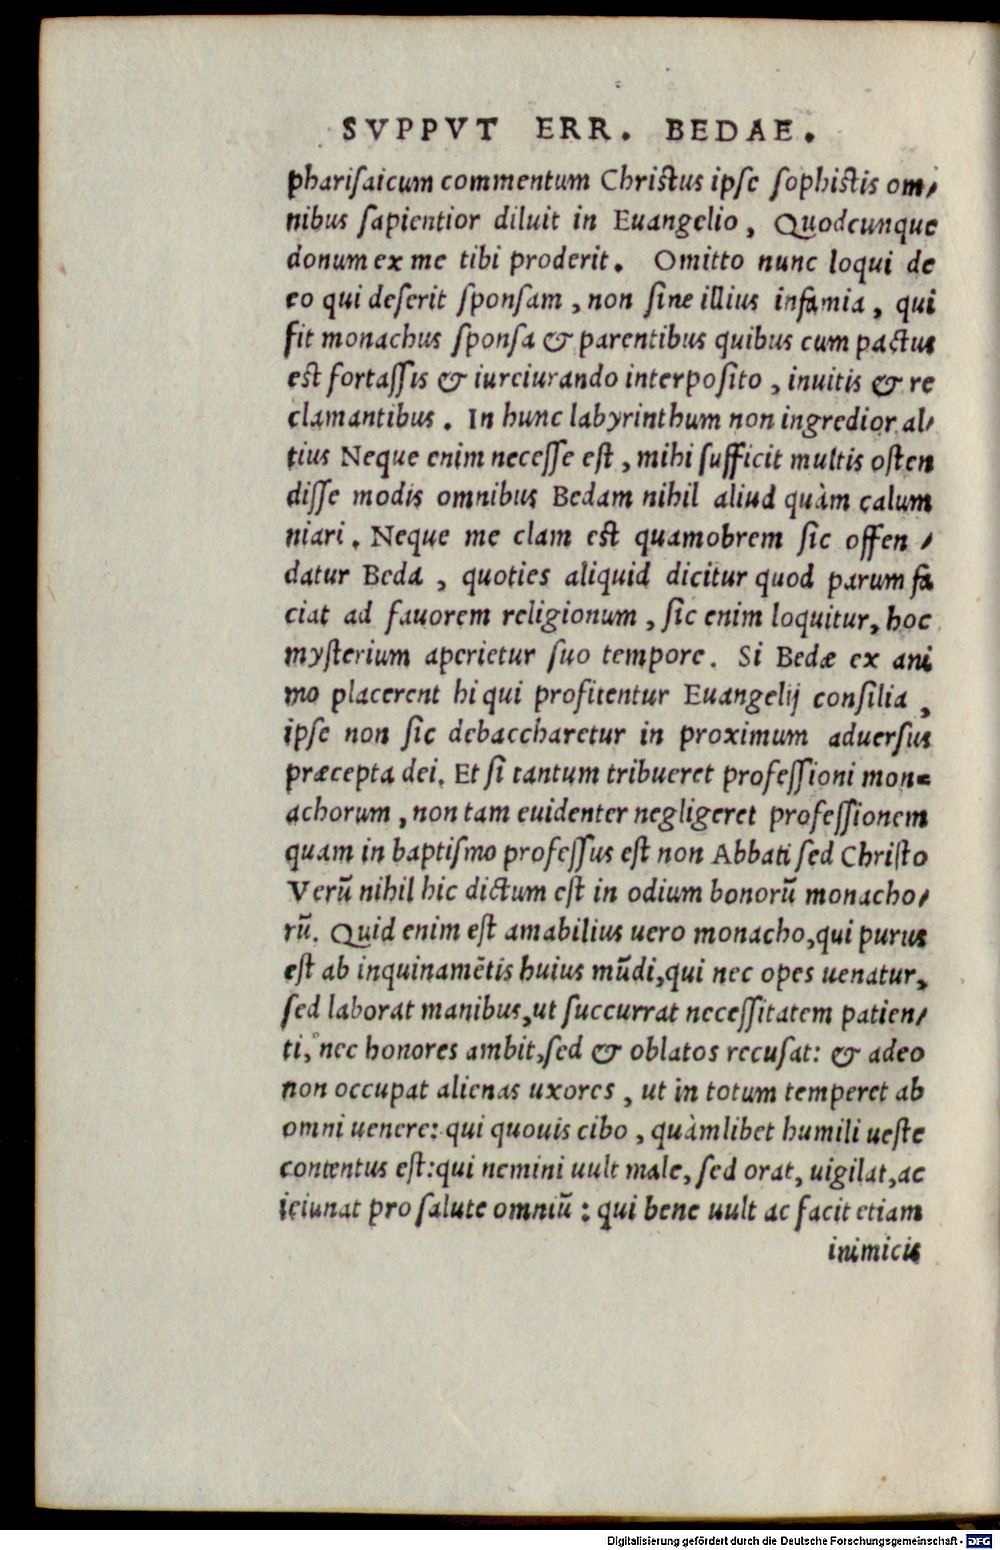 SVPPVT ERR. BEDAE.
pharisaicum commentum Christus ipse sophistis om/
nibus sapientior diluit in Euangelio, Quodcunque
donum ex me tibi proderit. Omitto nunc loqui de
eo qui deserit sponsam, non sine illius infamia, qui
fit monachus sponsa & parentibus quibus cum pactus
est fortassis & iurciurando interposito, inuitis & re
clamantibus. In hunc labyrinthum non ingredior al/
tius Neque enim necesse est, mihi sufficit multis osten
disse modis omnibus Bedam nihil aliud quàm calum
niari. Neque me clam est quamobrem sic offen/
datur Beda, quoties aliquid dicitur quod parum fa
ciat ad fauorem religionum, sic enim loquitur, hoc
mysterium aperietur suo tempore. Si Bedæ ex ani
mo placerent hi qui profitentur Euangelij consilia,
ipse non sic debaccharetur in proximum aduersus
præcepta dei. Et si tantum tribueret professioni mon=
achorum, non tam euidenter negligeret professionem
quam in baptismo professus est non Abbati sed Christo
Verū nihil hic dictum est in odium bonorū monacho/
rū. Quid enim est amabilius uero monacho, qui purus
est ab inquinamētis huius mūdi, qui nec opes uenatur,
sed laborat manibus, ut succurrat necessitatem patien/
ti, nec honores ambit, sed & oblatos recusat: & adeo
non occupat alienas uxores, ut in totum temperet ab
omni uenere: qui quouis cibo, quàmlibet humili ueste
contentus est: qui nemini uult male, sed orat, uigilat, ac
ieiunat pro salute omniū: qui bene uult ac facit etiam
inimicis
Digitalisierung gefördert durch die Deutsche Forschungsgemeinschaft - DFG